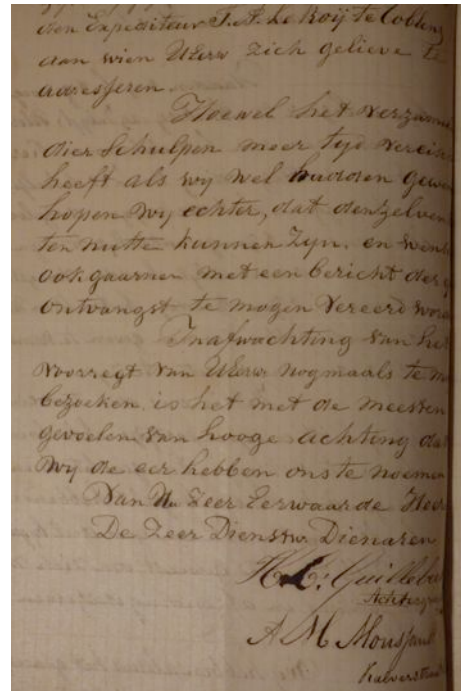 den Expediteur F. A. Le Roij te Coblenz
aan wien UEerw zich gelieve te
adresseren.
Hoewel het verzame
dier Schulpen meer tyd vereis
heeft als wy wel hadden gewen
hopen wy echter, dat denzelven
ten nutte kunnen zyn, en wens
ook gaarne met een bericht der
ontvangst te mogen vereerd wor
In afwachting van het
voorregt van UEerw nogmaals te m
bezoeken, is het met de meesten
gevoelen van hooge achting dat
wy de eer hebben ons te noemen
Van Uw Zeer Eerwaarde Heer
De Zeer Dienstw. Dienaren
A M Mousjaul
Kalverstraat